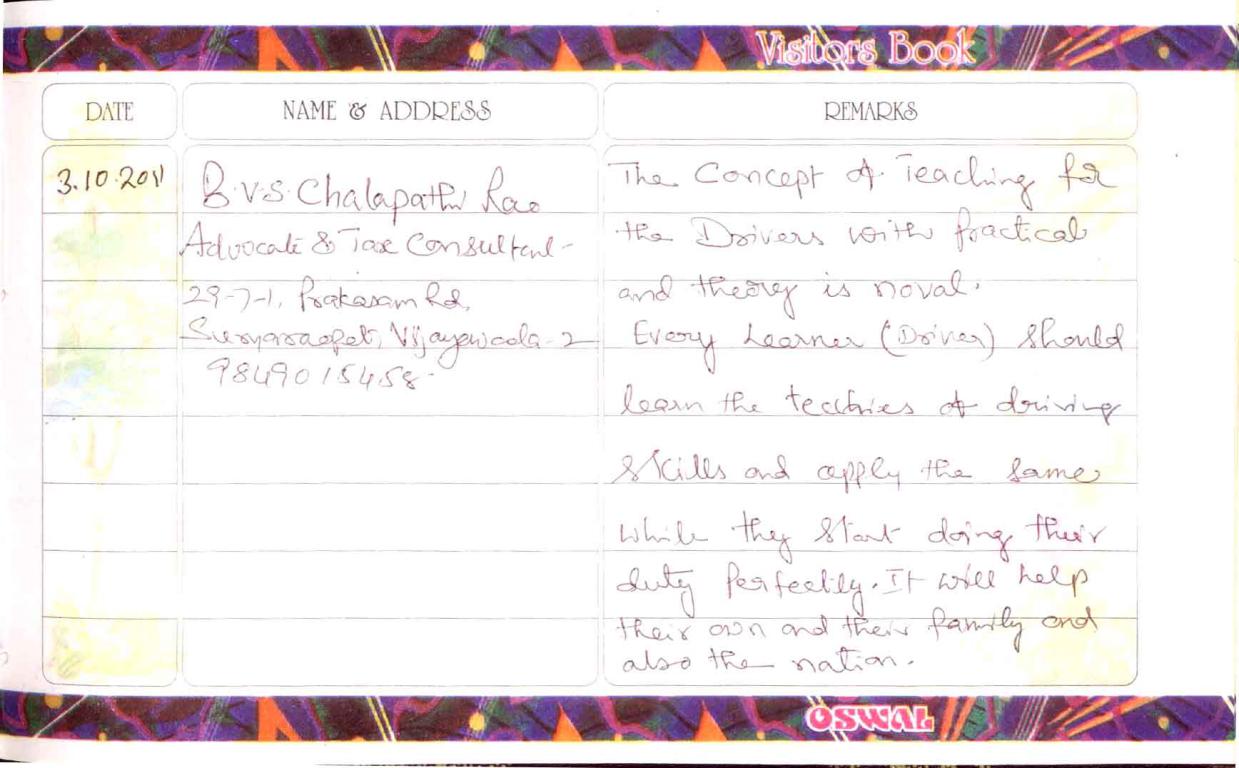 Visitors Book
DATE
NAME & ADDRESS
REMARKS
3.10.2011
B.V.S. Chalapathi Rao
Advocate & Tax Consultant-
29-7-1, Prakasam Rd,
Suryaraopet, Vijayawada-2
9849015458.
The Concept of Teaching for
the Drivers with practical
and theory is noval.
Every Learner (Driver) should
learn the of driving
skills and apply the same
while they start doing their
duty perfectly. It will help
their own and their family and
also the nation.
OSWAL